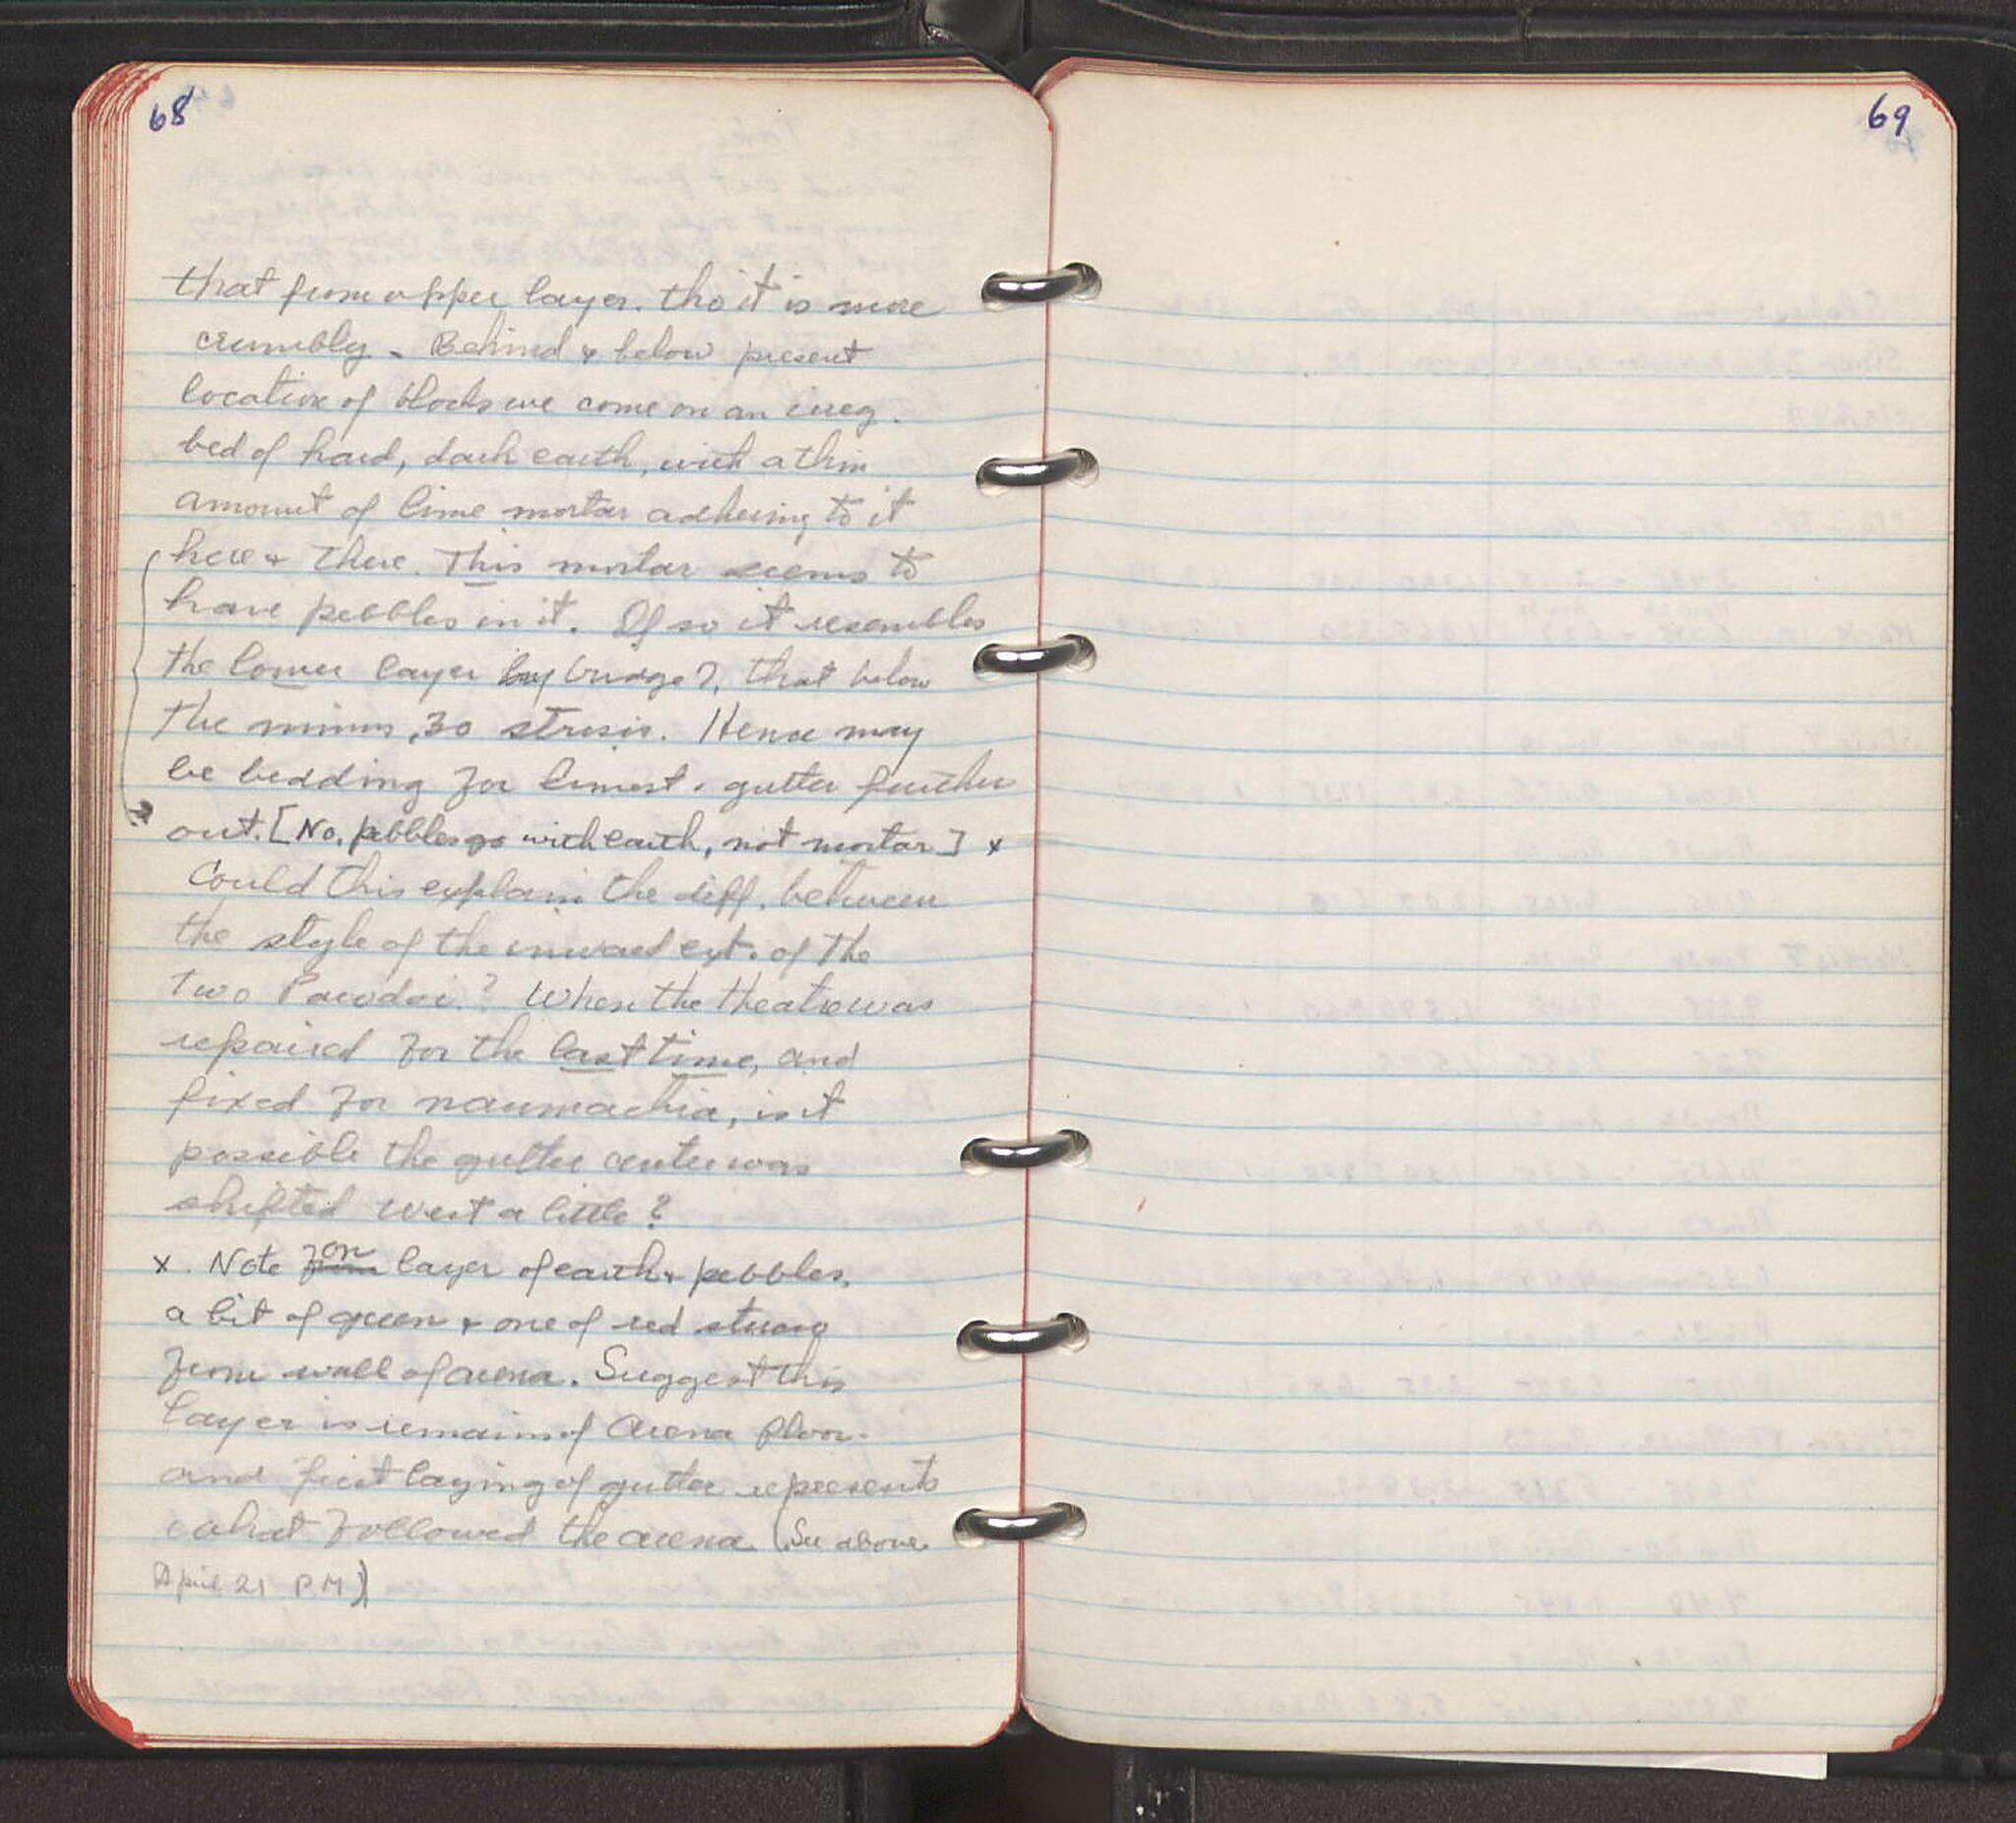 68
that from upper layer. tho it is more
crumbly - Behind & below present
location of blocks we come on an irreg.
bed of hard, dark earth, with a thin
amount of lime mortar adhering to it
here & there. This mortar seems to
have pebbles in it. If so it resembles
the lower layer by bridge 7, that below
the minus .30 stosis. Hence may
be bedding for limest. gutter further
out. [No. pebbles go with earth, not mortar] x
Could this explain the diff. between
the style of the inward ext. of the
two Parodoi? When the theatre was
repaired for the last time, and
fixed for naumachia, is it
possible the gutter center was
shifted west a little?
x. Note from on layer of earth & pebbles,
a bit of green & one of red stucco
from wall of arena. Suggest this
layer is remains of Arena floor.
and first laying of gutter represents
what followed the arena (See above
April 21 P.M.)
69